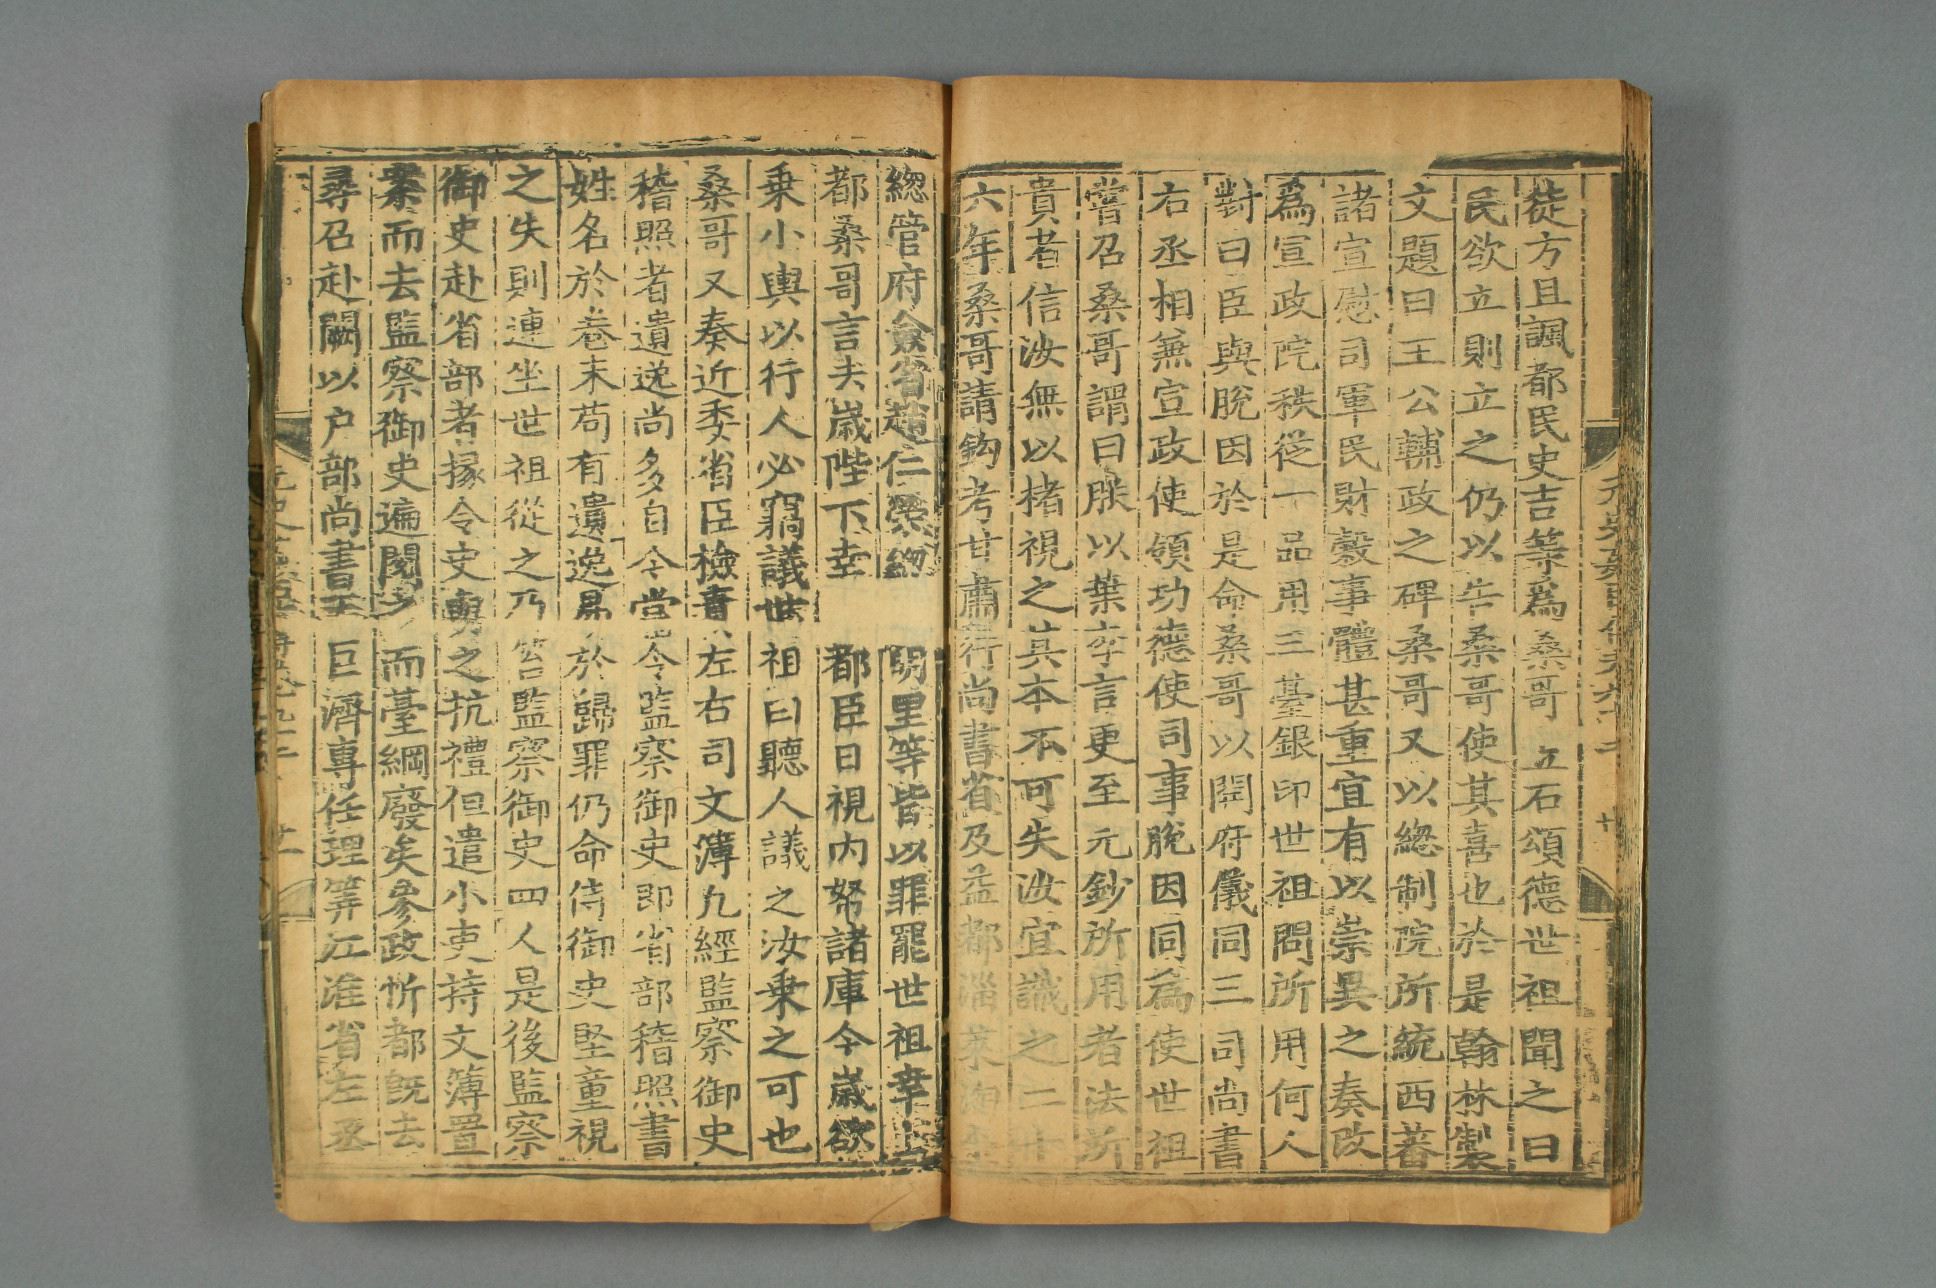 徒方且諷都民史吉等爲桑哥立石頌德世祖聞之曰
民欲立則立之仍以告桑哥使其喜也於是翰林製
文題曰王公輔政之碑桑哥又以總制院所統西蕃
諸宣慰司軍民財穀事體甚重宜有以崇異之奏改
爲宣政院秩從一品用三臺銀印世祖問所用何人
對曰臣與脫因於是命桑哥以開府儀同三司尚書
右丞相兼宣政使領功德使司事脫因同爲使世祖
嘗召桑哥謂曰朕以葉李言更至元鈔所用者法所
貴者信汝無以楮視之其本不可失汝宜識之二十
六年桑哥請鈎考甘肅行尚書省及益都淄萊
總管府僉省趙仁榮總 明里等皆以罪罷世祖幸上
都桑哥言去歲陛下幸 都臣日視內帑諸庫今歲欲
乗小輿以行人必竊議世祖曰聽人議之汝乗之可也
桑哥又奏近委省臣檢責左右司文簿凡經監察御史
稽照者遺逸尚多自今當令監察御史即省部稽照書
姓名於卷末苟有遺逸易於歸罪仍命侍御史堅童視
之失則連坐世祖從之乃笞監察御史四人是後監察
御史赴省部者掾令史與之抗禮但遣小吏持文簿置
案而去監察御史遍閱之而臺綱廢矣參政忻都旣去
尋召赴闕以戶部尚書王巨濟專任理筭江淮省左丞